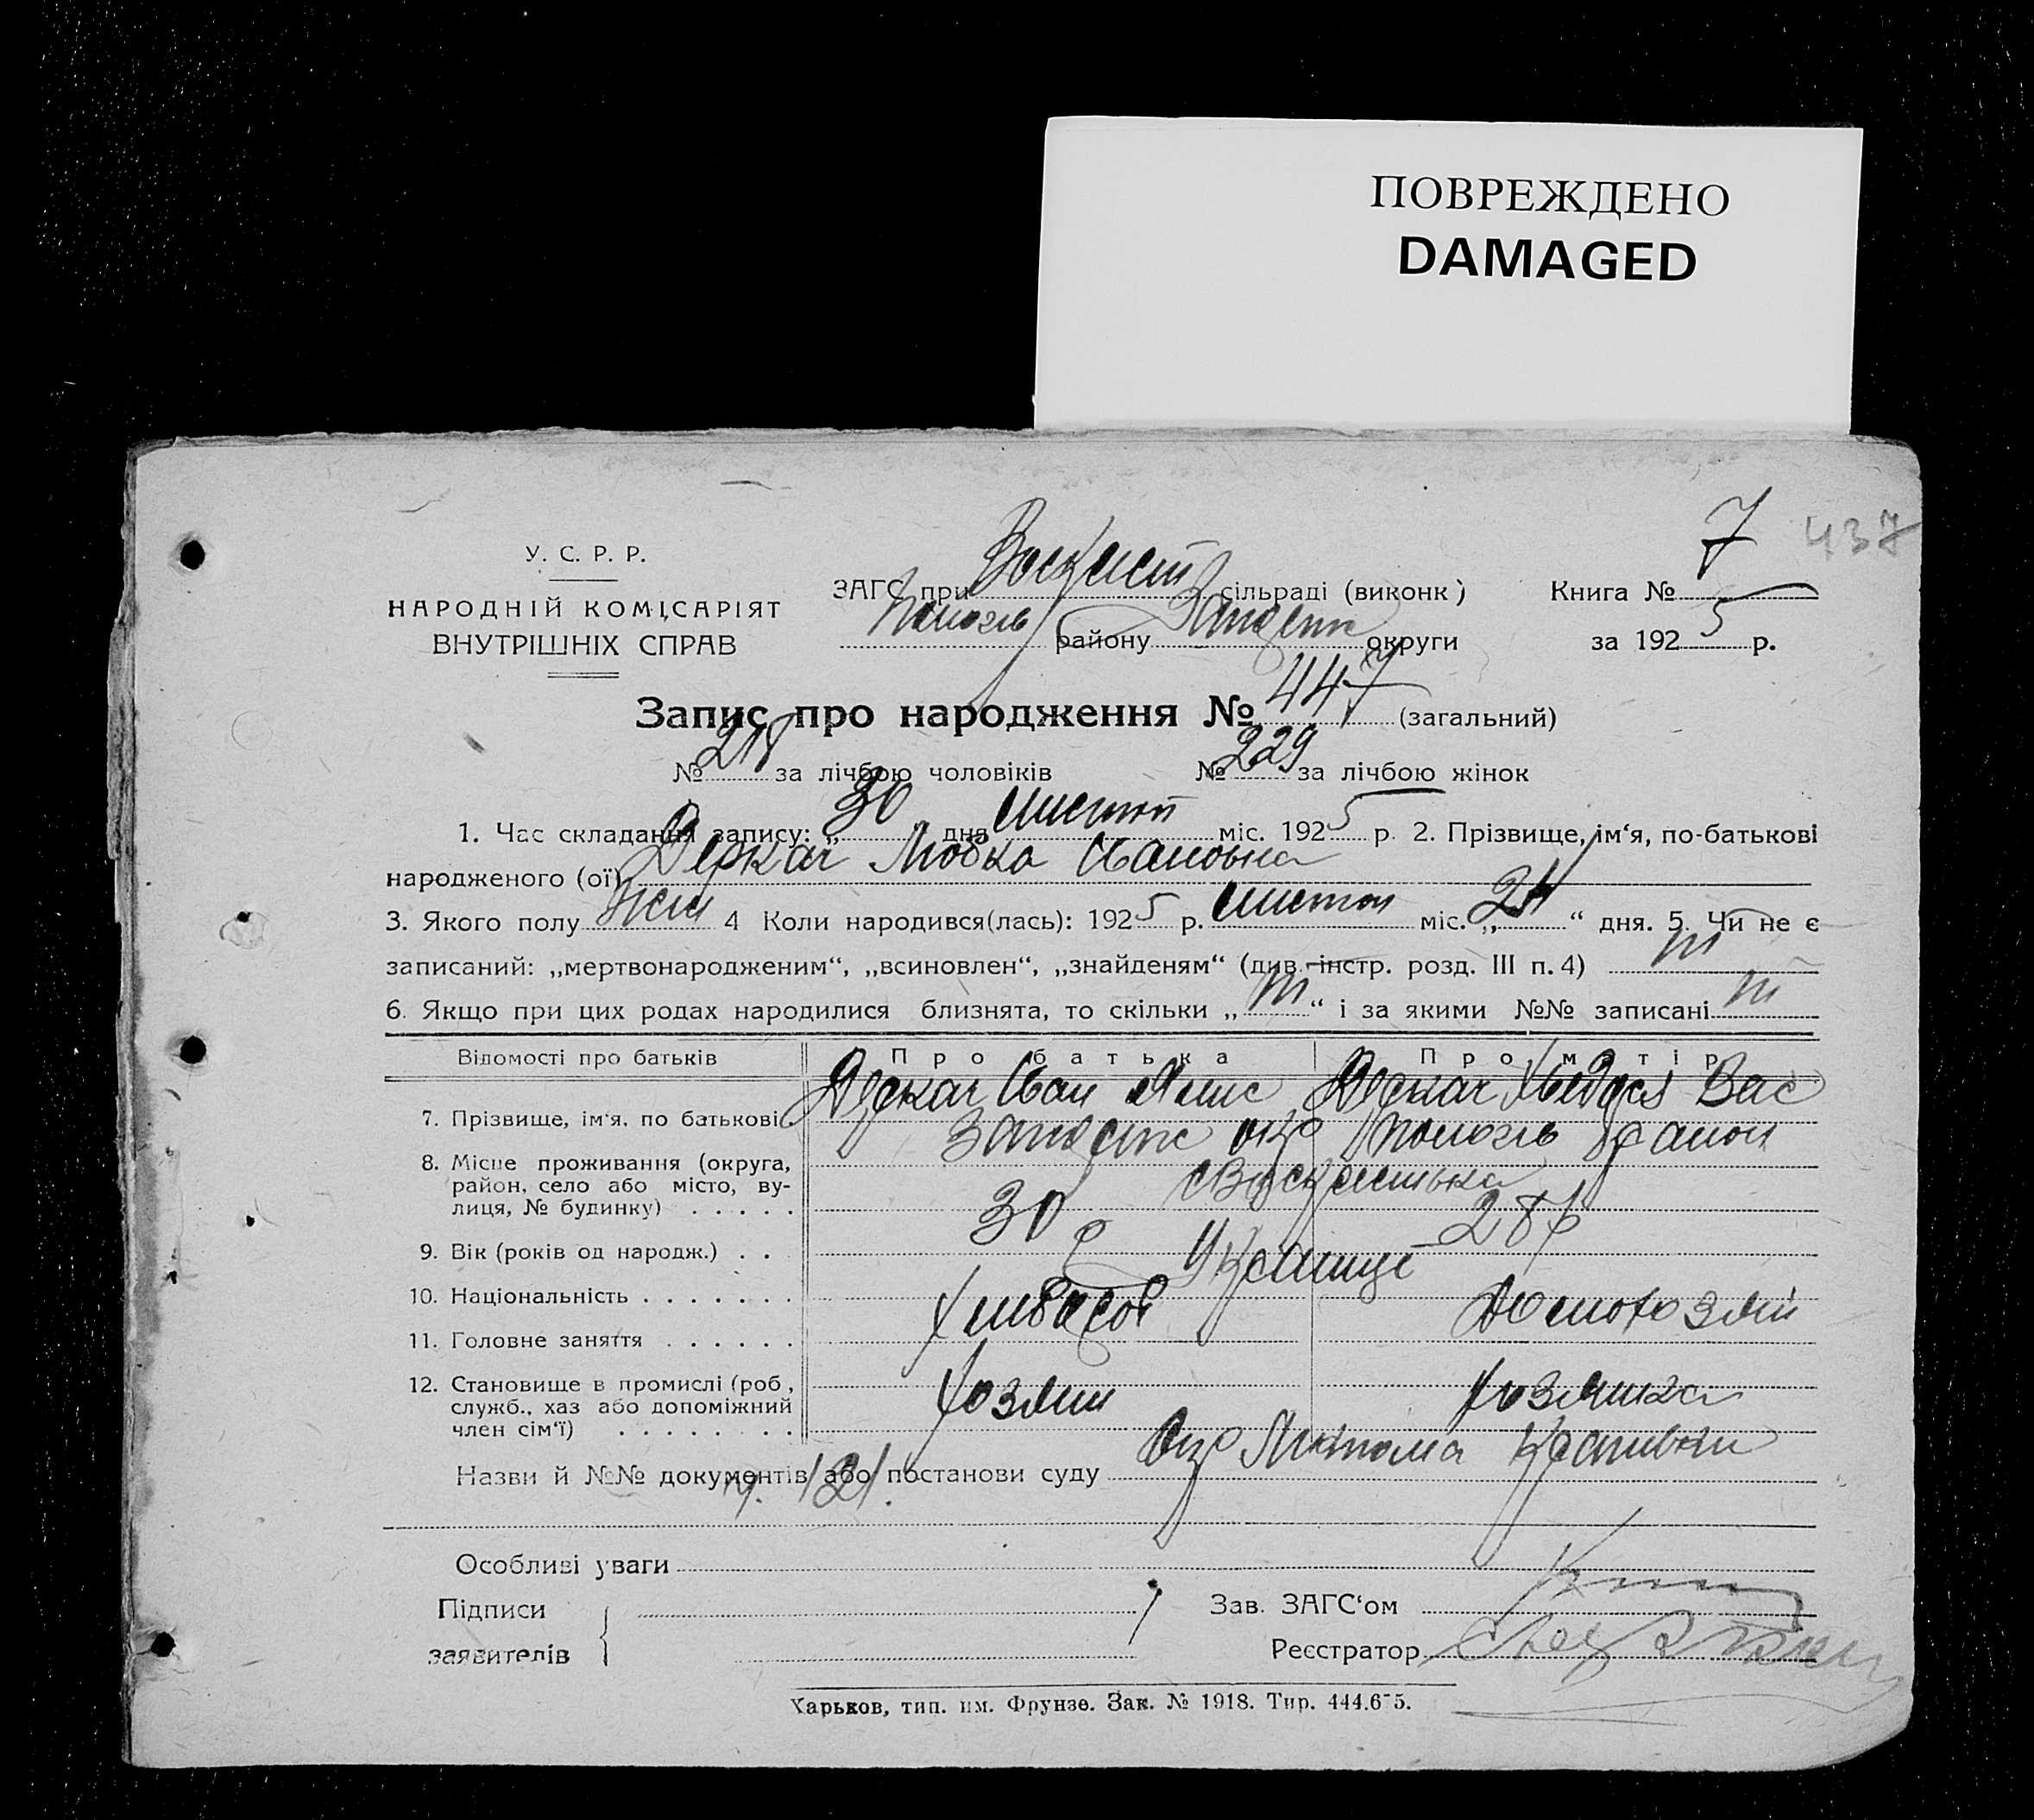 ПОВРЕЖДЕНО
DAMAGED
7 437
У. С. Р. Р.
НАРОДНІЙ КОМІСАРІЯТ
ВНУТРІШНІХ СПРАВ
ЗАГС при сільраді (виконк) Книга №
району округи за 1925 р.
Запис про народження № 447 (загальний)
№ 218 за лічбою чоловіків № 229 за лічбою жінок
1. Час складання запису: „30 дня листоп міс. 1925 р. 2. Прізвище, ім‘я, по-батькові
народженого (ої) Деркач Любка Ивановна
3. Якого полу жен 4 Коли народився(лась): 1925 р. листоп міс. „24“ дня. 5. Чи не є
записаний: „мертвонародженим“, „всиновлен“, „знайденям“ (див. інстр. розд. III п. 4) ні
6. Якщо при цих родах народилися близнята, то скільки „ні“ і за якими №№ записані ні
Відомості про батьків Про батька Про матір
7. Прізвище, ім‘я, по батькові Деркач Иван Деркач Вас
8. Місце проживання (округа, окр район
район, село або місто, ву-
лиця, № будинку)
9. Вік (років од народж.) 30 28
10. Національність Українці
11. Головне заняття Хлібороб Домохозяй
12. Становище в промислі (роб., Хозяин Хозяйка
служб., хаз або допоміжний
член сім‘ї)
Назви й №№ документів або постанови суду
121.
Особливі уваги
Підписи Зав. ЗАГС‘ом
заявителів Реєстратор
Харьков, тип. им. Фрунзе. Зак. № 1918. Тир. 444.675.